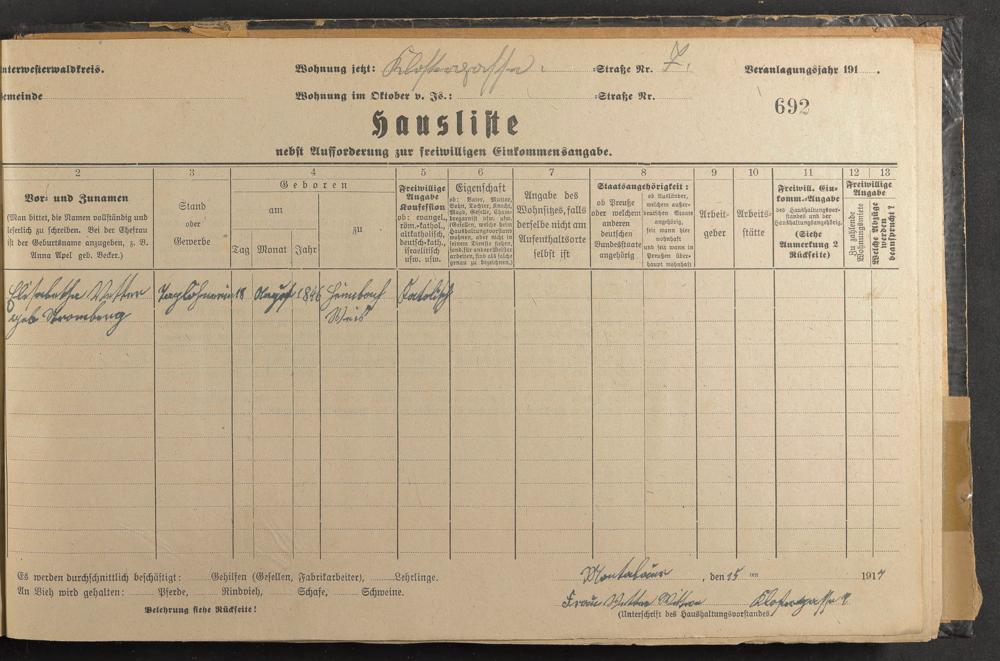 nterwesterwaldkreis. Wohnung jetzt: Klostergasse Straße Nr. 7. Veranlagungsjahr 191 .
emeinde Wohnung im Oktober v. Js.: Straße Nr.
692
Hausliste
nebst Aufforderung zur freiwilligen Einkommensangabe.
2 3 4 5 6 7 8 9 10 11 12 13
Vor- und Zunamen
(Man bittet, die Namen vollständig und
leserlich zu schreiben. Bei der Ehefrau
ist der Geburtsname anzugeben, z. B.
Anna Apel geb. Becker.)
Stand
oder
Gewerbe
Geboren
am
zu
Tag Monat Jahr
Freiwillige
Angabe
Konfession
ob: evangel.,
röm.-kathol.,
altkatholisch,
deutsch-kath.,
israelitisch
usw. usw.
Eigenschaft
ob: Vater, Mutter,
Sohn, Tochter, Knecht,
Magd, Geselle, Cham-
bregarnist usw. usw.
(Gesellen, welche beim
Haushaltungsvorstand
wohnen, aber nicht in
seinem Dienste stehen,
sond. für andere Meister
arbeiten, sind als solche
genau zu bezeichnen.)
Angabe des
Wohnsitzes, falls
derselbe nicht am
Aufenthaltsorte
selbst ist
Staatsangehörigkeit:
ob Preuße
oder welchem
anderen
deutschen
Bundesstaate
angehörig
ob Ausländer,
welchem außer-
deutschen Staate
angehörig,
seit wann hier
wohnhaft
und seit wann in
Preußen über-
haupt wohnhaft
Arbeit-
geber
Arbeits-
stätte
Freiwill. Ein-
komm.-Angabe
des Haushaltungsvor-
standes und der
Haushaltungsangehörig.
(Siehe
Anmerkung 2
Rückseite)
Freiwillige
Angabe
Zu zahlende
Wohnungsmiete
Welche Abzüge
werden
beansprucht?
Elisabetha Vetter Taglöhnerin 18 August 1846 Himbach Katolisch
geb Stromberg
Es werden durchschnittlich beschäftigt: Gehilfen (Gesellen, Fabrikarbeiter), Lehrlinge.
An Vieh wird gehalten: Pferde, Rindvieh, Schafe, Schweine.
Belehrung siehe Rückseite!
Montabaur, den 15 ten 1917
Frau Vetter Witwe Klostergasse
(Unterschrift des Haushaltungsvorstandes)